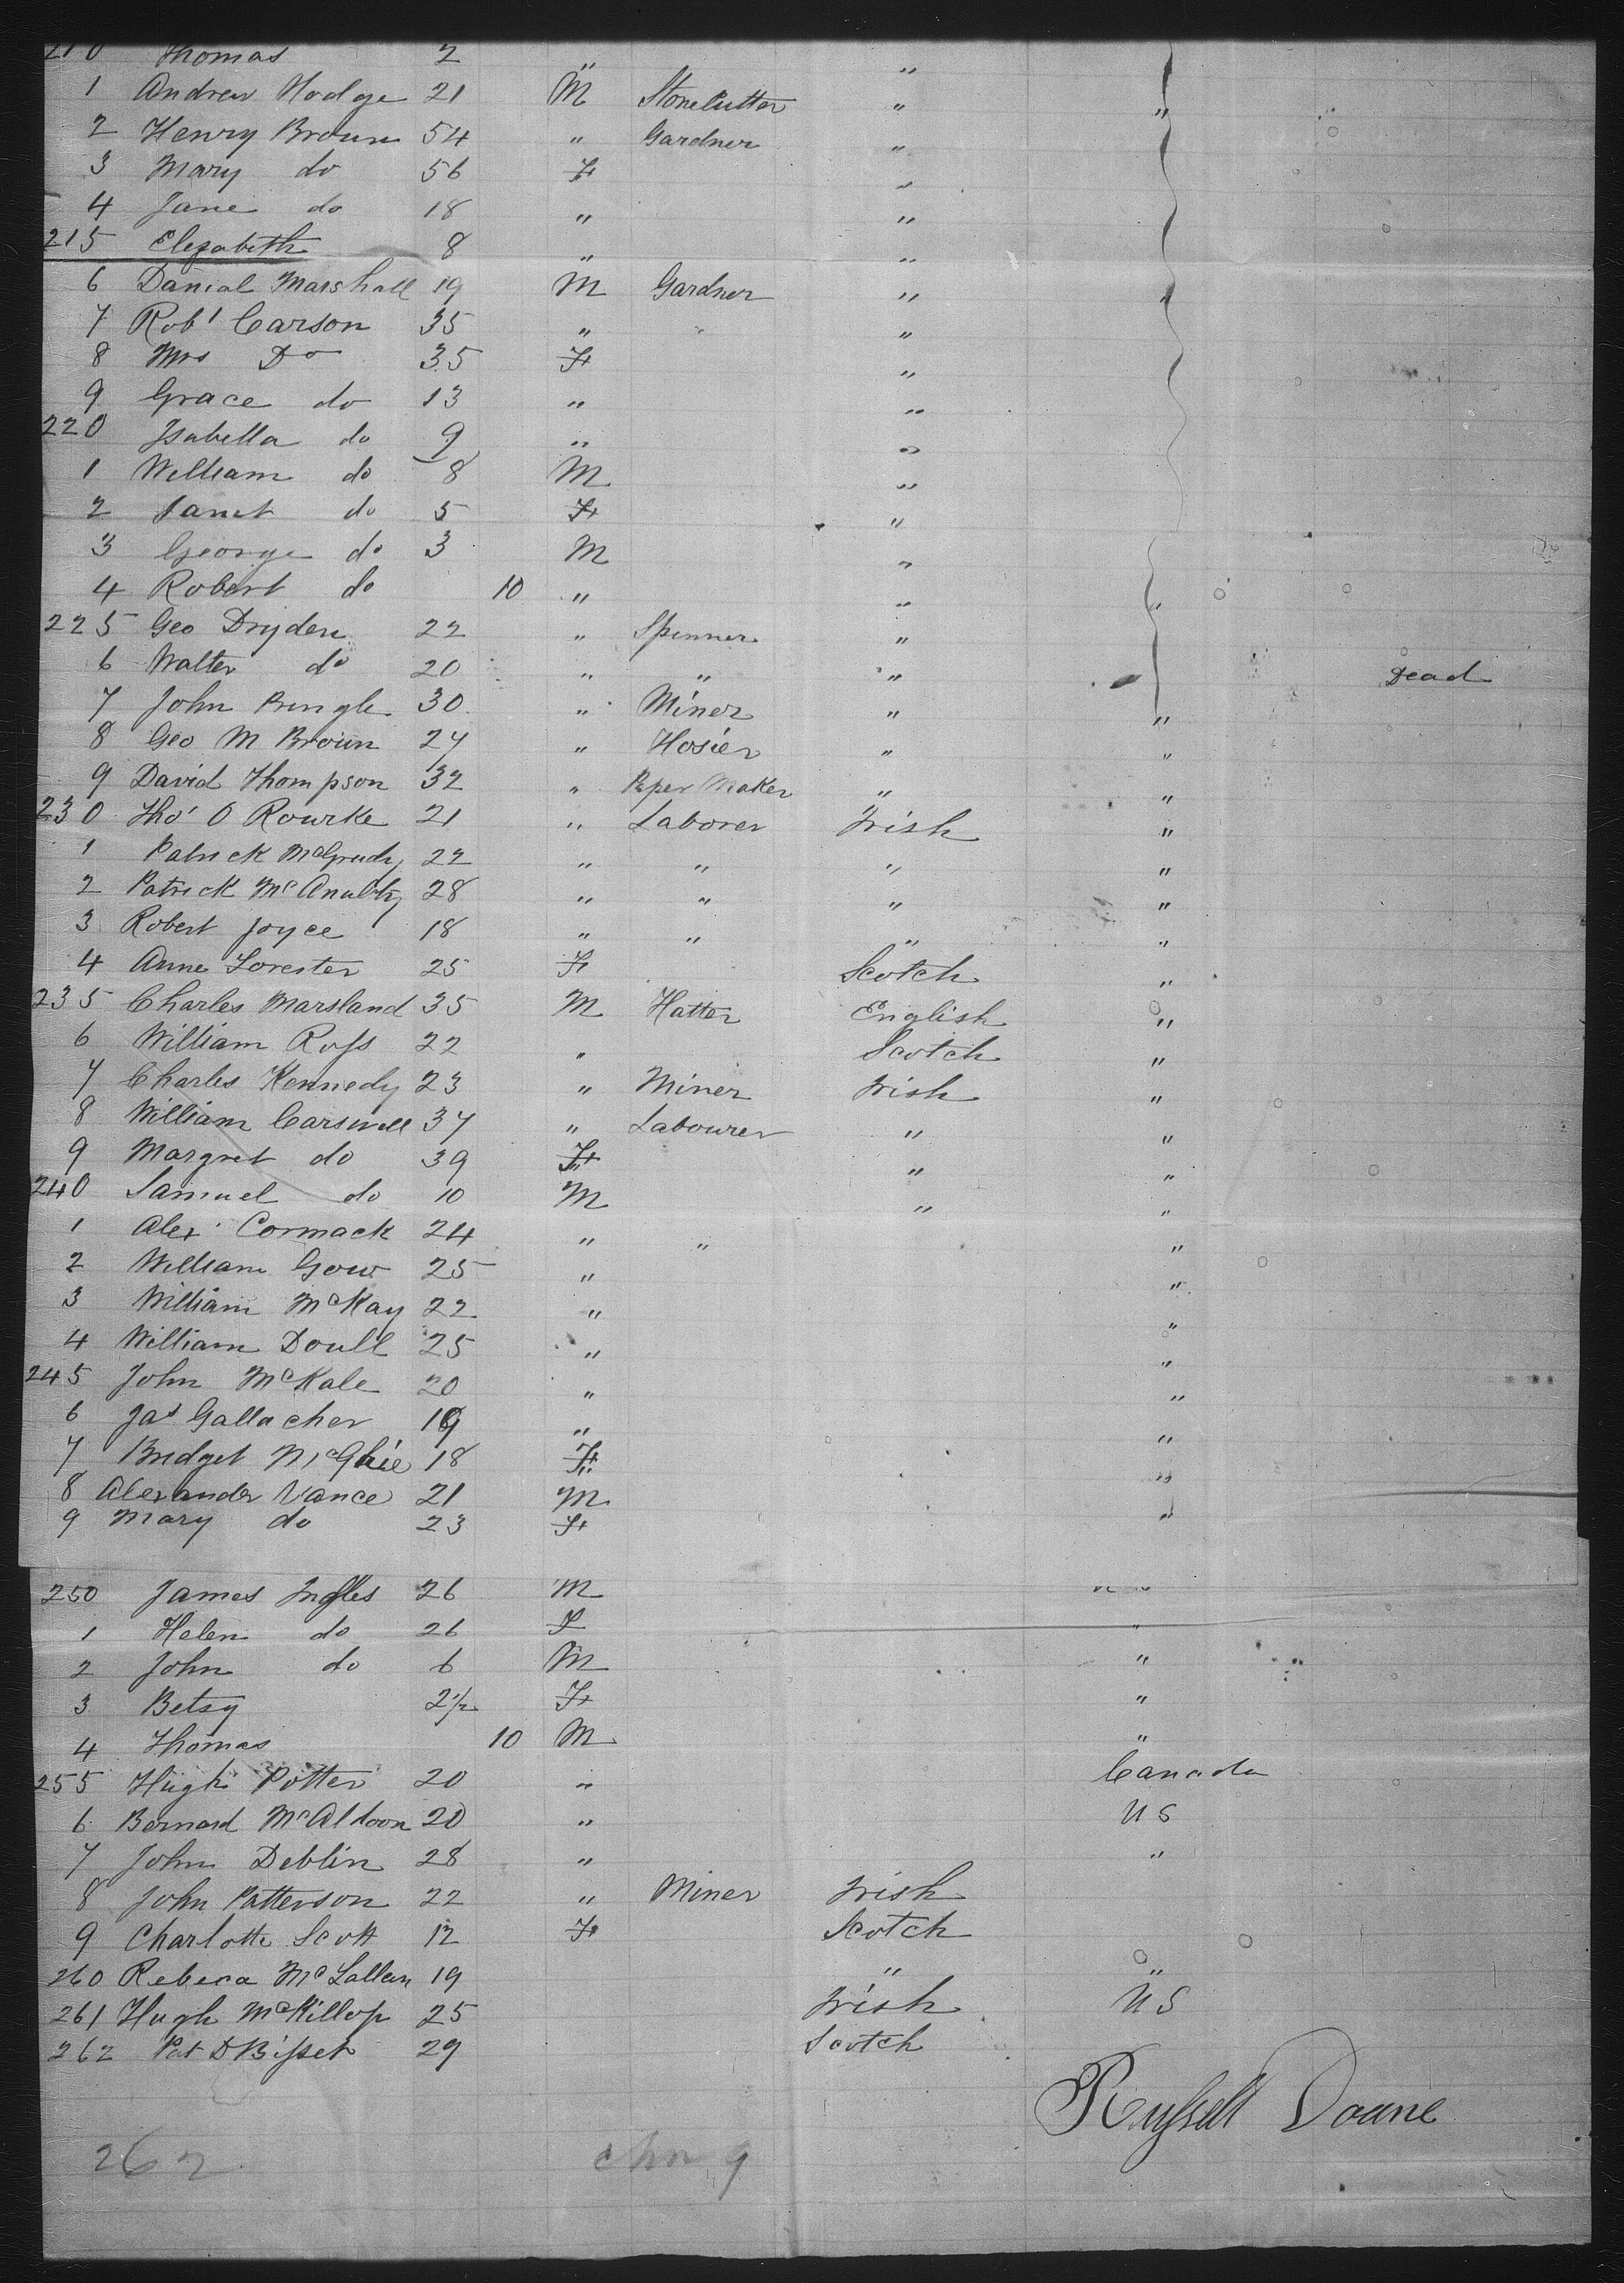 210 Thomas 2 " "
1 Andrew Hodge 21 M Stonecutter " "
2 Henry Broun 54 " Gardner "
3 Mary do 56 F "
4 Jane do 18 " "
215 Elezabeth 8 " "
6 Danial Marshall 19 M Gardner "
7 Robt Carson 35 " " "
8 Mrs Do 35 F "
9 Grace do 13 " "
220 Isabella do 9 " "
1 William do 8 M "
2 Janet do 5 F "
3 George do 3 M "
4 Robert do 10 " " "
225 Geo Dryden 22 " Spinner "
6 Walter do 20 " " " Dead
7 John Pringle 30 " Miner " "
8 Geo M Broun 27 " Hosier " "
9 David Thompson 32 " Paper Maker " "
230 Tho' O Rourke 21 " Laborer Irish "
1 Patrick 22 " " " "
2 Patrick McAnulty 28 " " " "
3 Robert Joyce 18 " " " "
4 Anne Forester 25 F Scotch "
235 Charles Marsland 35 M Hatter English "
6 William Ross 22 " Scotch "
7 Charles Kennedy 23 " Miner Irish "
8 William Carswell 37 " Labourer " "
9 Margret do 39 F " "
240 Samuel do 10 M " "
1 Alex. Cormack 24 " " "
2 William Gow 25 " "
3 William McKay 22 " "
4 William Doull 25 " "
245 John McKale 20 " "
6 Jas Gallacher 19 " "
7 Bridget McGhie 18 F "
8 Alexander Vance 21 M "
9 Mary do 23 F "
250 James Ingles 26 M "
1 Helen do 26 F "
2 John do 6 M "
3 Betsy 2½ F "
4 Thomas 10 M "
255 Hugh Potter 20 " Canada
6 Bernard McAldoon 20 " US
7 John Deblin 28 " "
8 John Patterson 22 " Miner Irish
9 Charlotte Scott 12 F Scotch
260 Rebeca McLallan 19 " "
261 Hugh McKillop 25 Irish US
262 Pat D Bisset 29 Scotch
Russell Doane
262